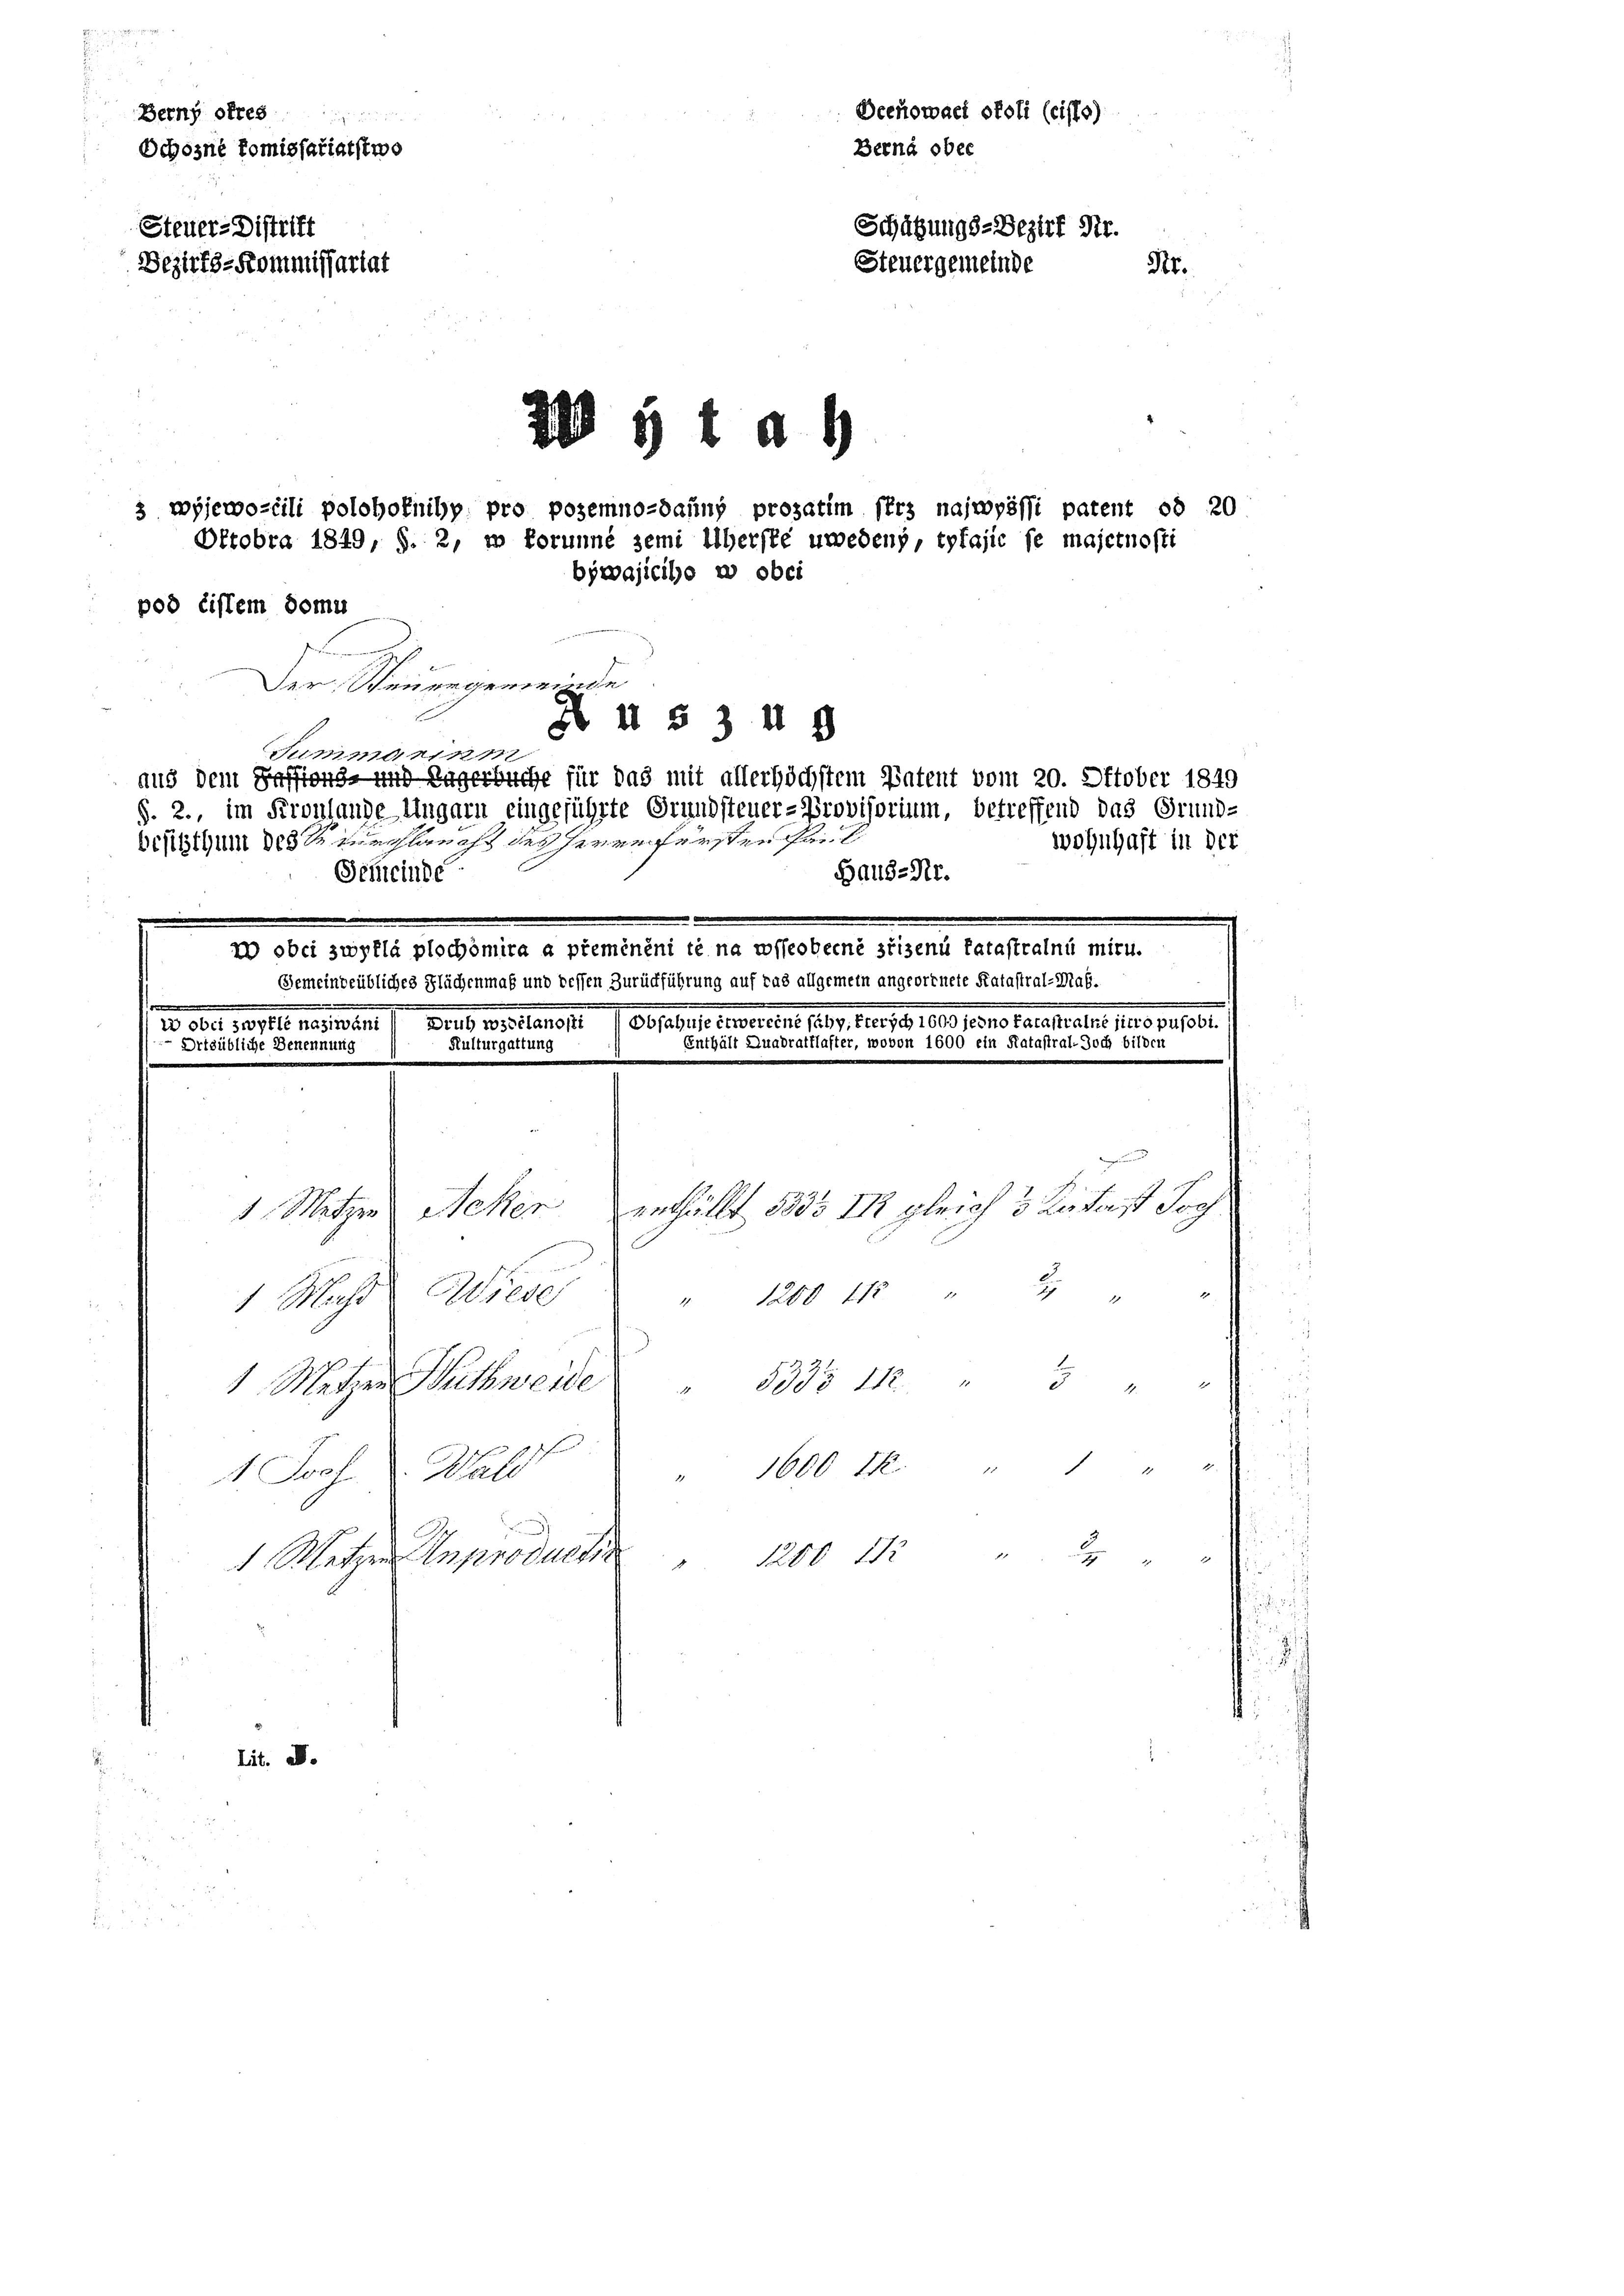 Berný okres
Očhozné komissařiatstwo
Oceňowací okolí (cislo)
Berná obec
Steuer=Distrikt
Bezirks=Kommissariat
Schätzungs=Bezirk Nr.
Steuergemeinde Nr.
Wýtah
z wýjewo=čili polohoknihy pro pozemno=daňný prozatim skrz najwyšssi patent od 20
Oktobra 1849, §. 2, w korunné zemi Uherské uwedený, tykajíc se majetnosti
býwajícího w obci
pod číslem domu
Der Steuergemeinde
Auszug
Summarium
aus dem Fassions= und Lagerbuche für das mit allerhöchstem Patent vom 20. Oktober 1849
§. 2., im Kronlande Ungarn eingeführte Grundsteuer=Provisorium, betreffend das Grund=
besitzthum des Sr Durchlaucht des Herrn Fürsten Paul wohnhaft in der
Gemeinde Haus=Nr.
W obci zwyklá plochomira a přeměnění té na wsseobecně zřízenú katastralnú míru.
Gemeindeübliches Flächenmaß und dessen Zurückführung auf das allgemein angeordnete Katastral=Maß.
W obci zwyklé naziwáni Druh wzdělanosti Obsahuje čtwerečné sáhy, kterých 1600 jedno katastralné jitro pusobí.
Ortsübliche Benennung Kulturgattung Enthält Quadratklafter, wovon 1600 ein Katastral=Joch bilden
1 Metzen Acker enthällt 533⅓ □K gleich ⅓ Katast Joch
1 Mahd Wiese " 1200 □K " ¾ " "
1 Metzen Huthweide " 533⅓ □K " ⅓ " "
1 Joch Wald " 1600 □K " 1 " "
1 Metzen Unproductiv " 1200 □K " ¾ " "
Lit. J.